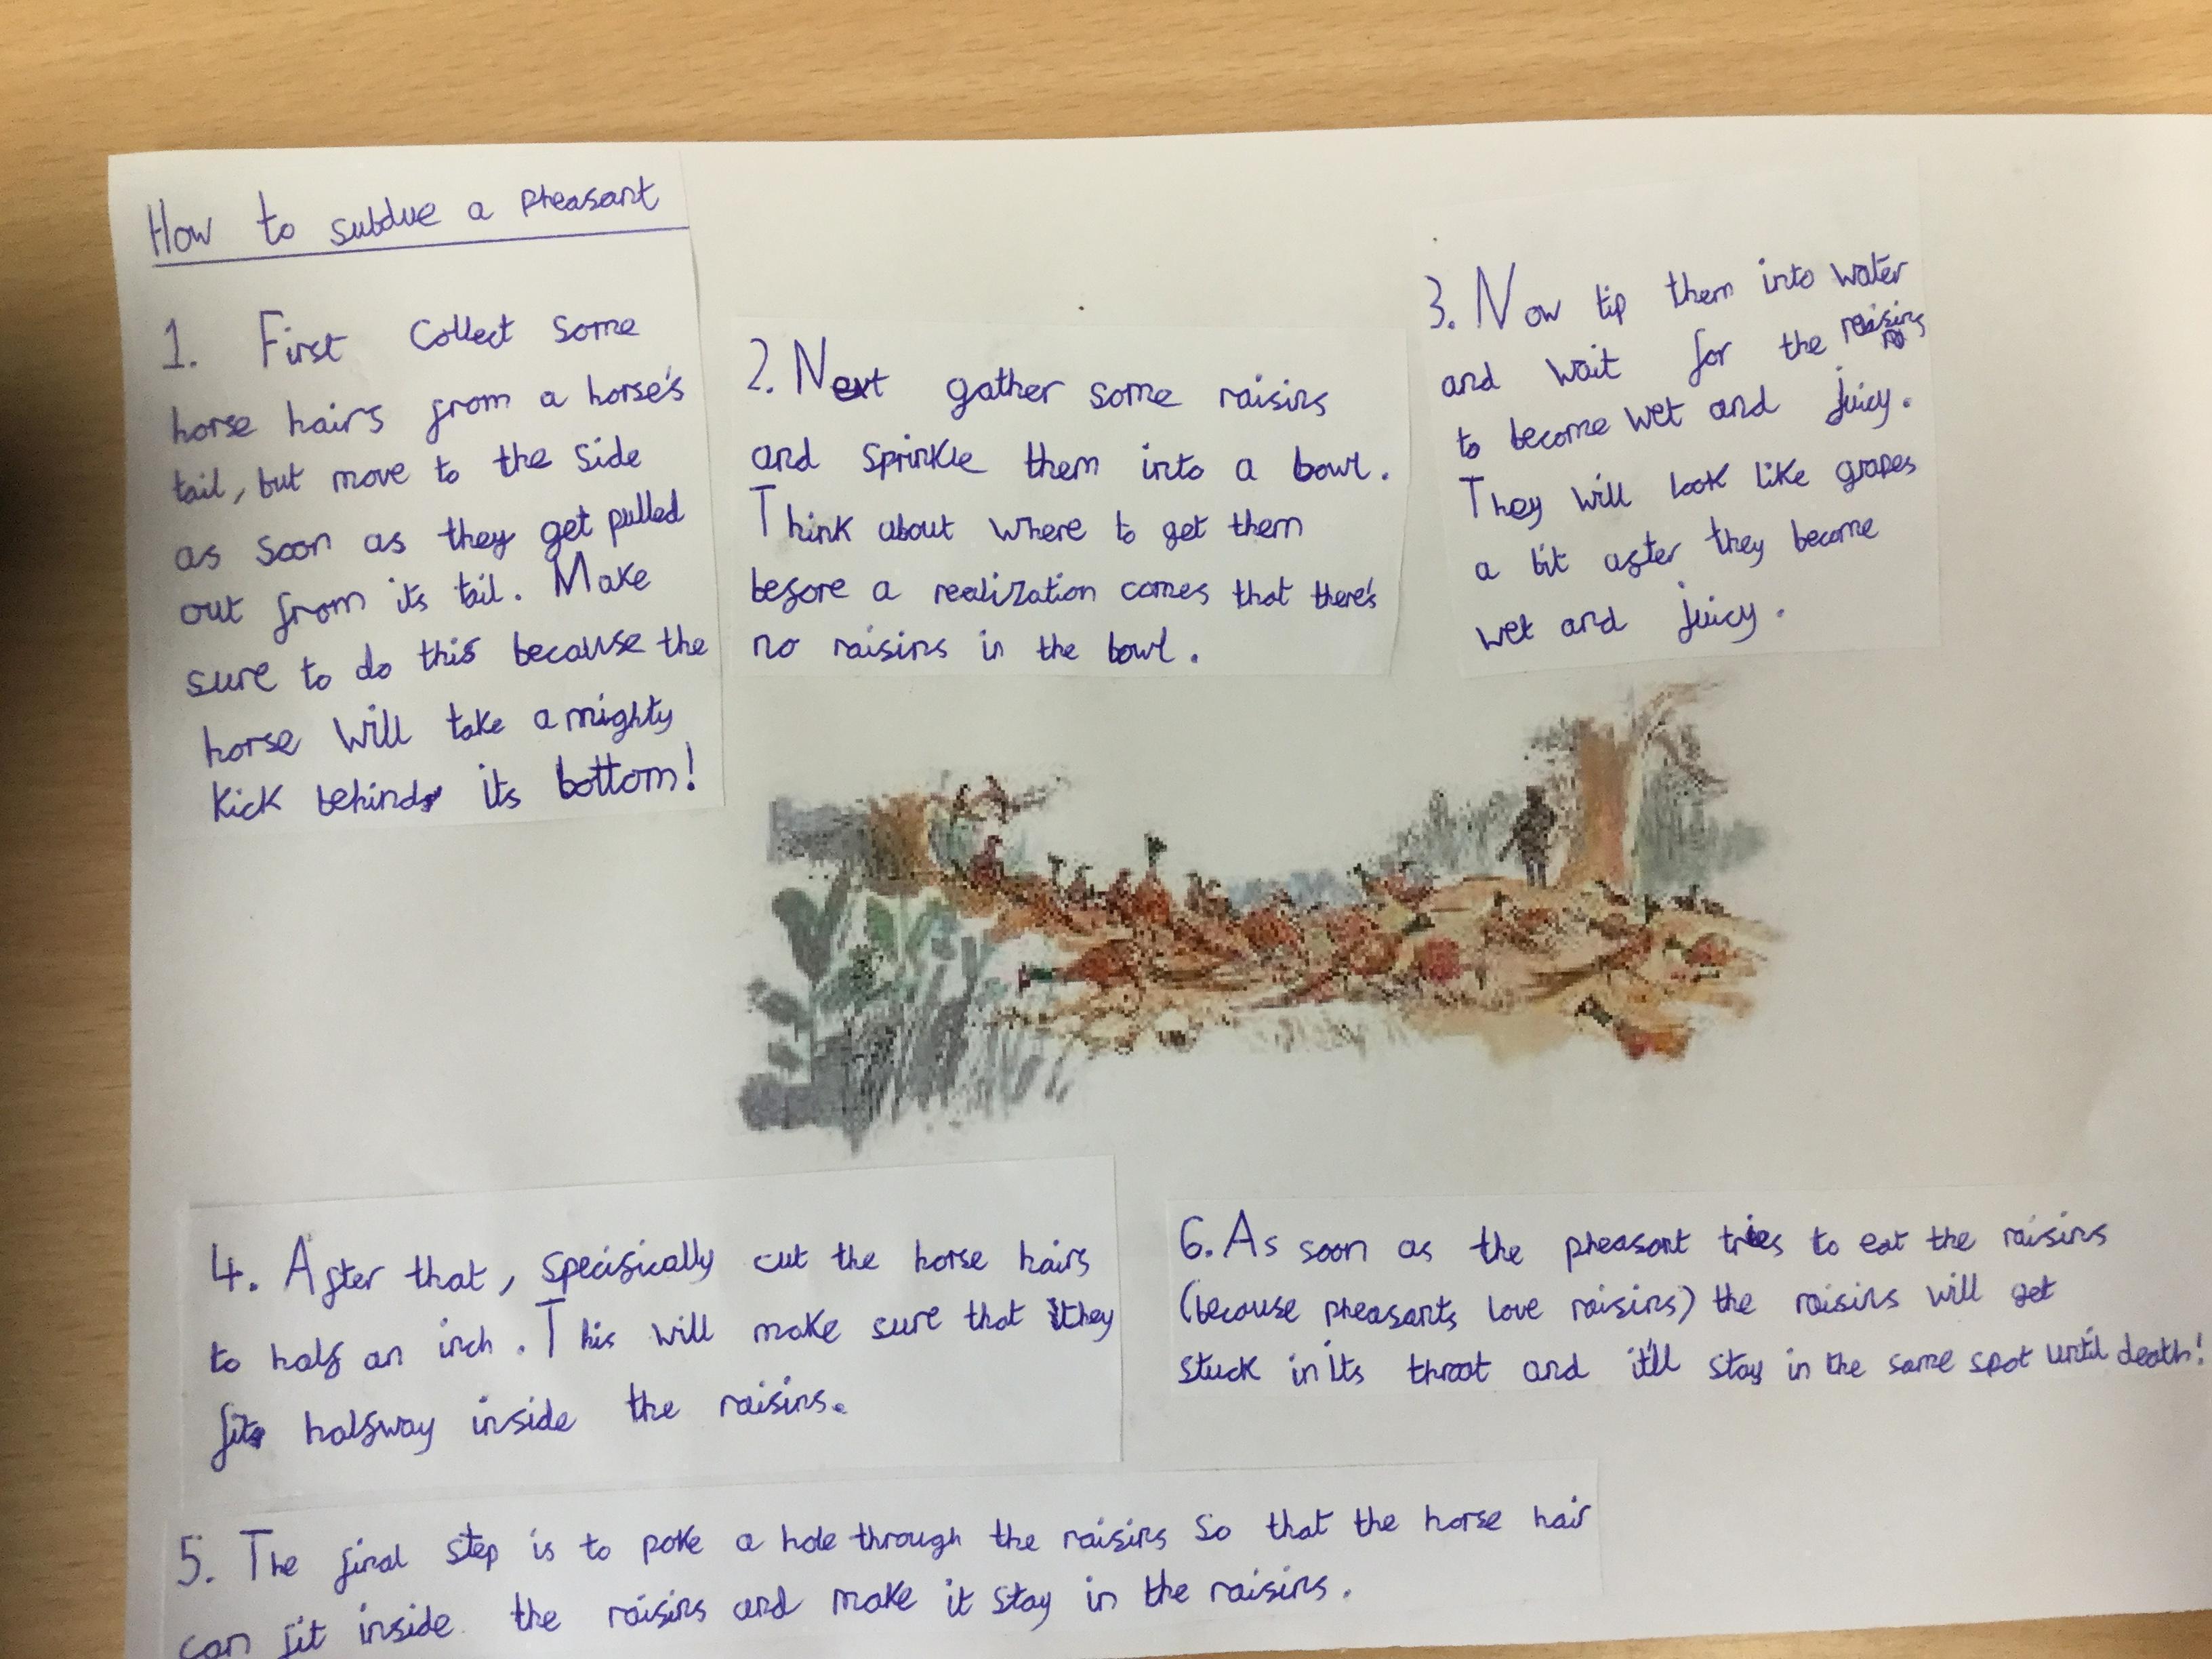 How to subdue a pheasant
1. First collect some
horse hairs from a horse's
tail, but move to the side
as soon as they get pulled
out from its tail. Make
sure to do this because the
horse will take a mighty
kick behind its bottom!
2. Next gather some raisins
and sprinkle them into a bowl.
Think about where to get them
before a realization comes that there's
no raisins in the bowl.
3. Now tip them into water
and wait for the raisins
to become wet and juicy.
They will look like grapes
a bit after they become
wet and juicy.
4. After that, specifically cut the horse hairs
to half an inch. This will make sure that they
fit halfway inside the raisins.
5. The final step is to poke a hole through the raisins so that the horse hair
can fit inside the raisins and make it stay in the raisins.
6. As soon as the pheasant tries to eat the raisins
(because pheasants love raisins) the raisins will get
stuck in its throat and it'll stay in the same spot until death!